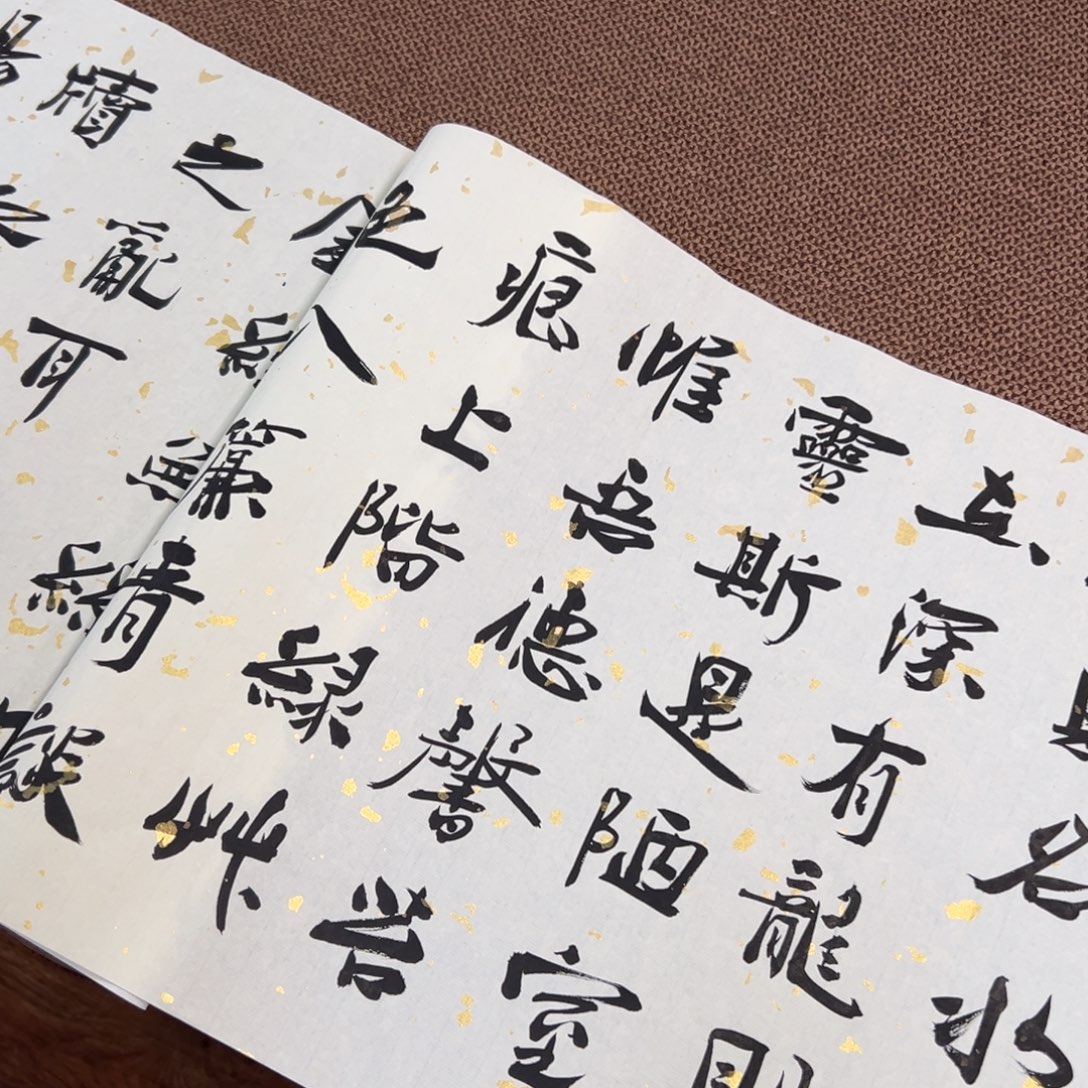 名水
在深有龍則
靈斯是陋室
惟吾德馨苔
痕上階綠艸
色入簾青談
之亂耳
牘之